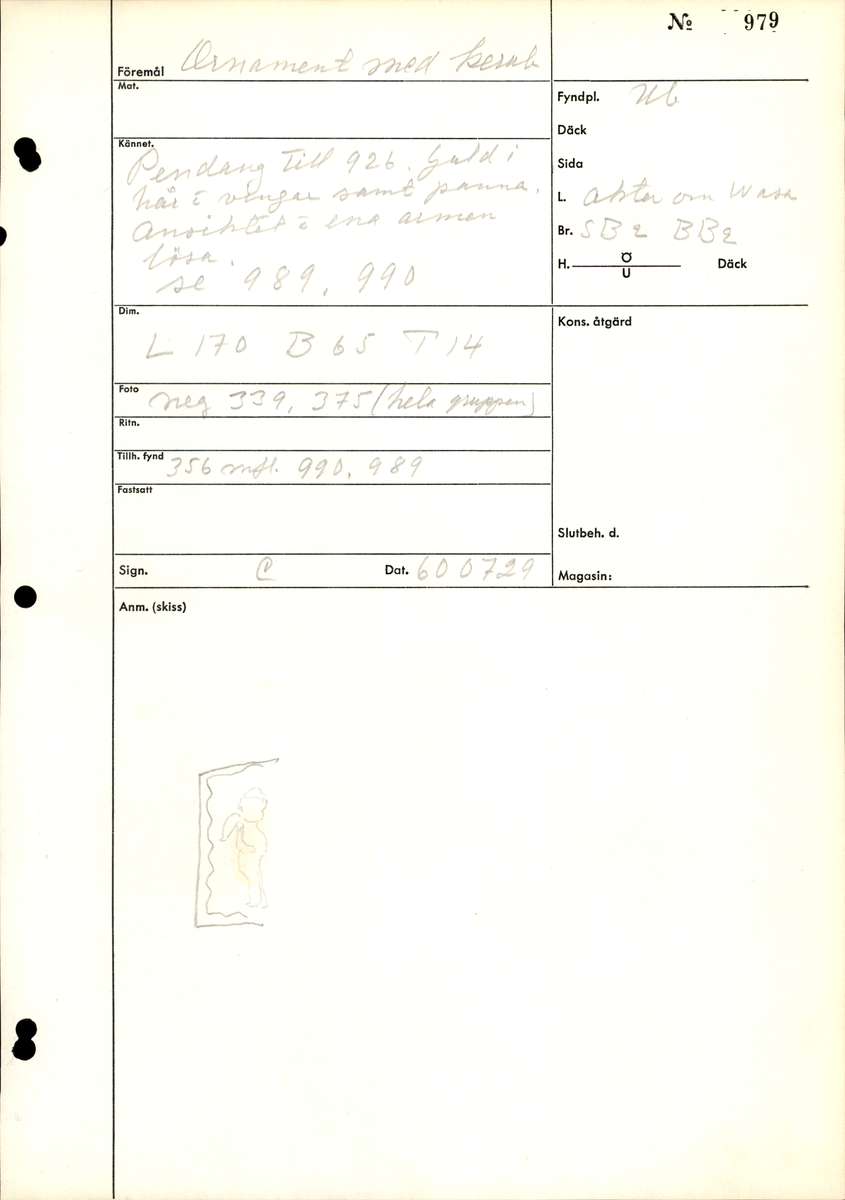 № 979
Föremål Ornament med kerub
Mat.
Kännet.
Pendang till 926. Guld i
hår & vingar samt panna.
Ansiktet & ena armen
lösa.
se 989, 990
Dim.
L 170 B 65 T 14
Foto neg 339, 375 (hela gruppen)
Ritn.
Tillh. fynd 356 mfl. 990, 989
Fastsatt
Sign. C Dat. 600729
Fyndpl. Ub
Däck
Sida
L. Akter om Wasa
Br. SB & BB
H. Ö
U Däck
Kons. åtgärd
Slutbeh. d.
Magasin:
Anm. (skiss)